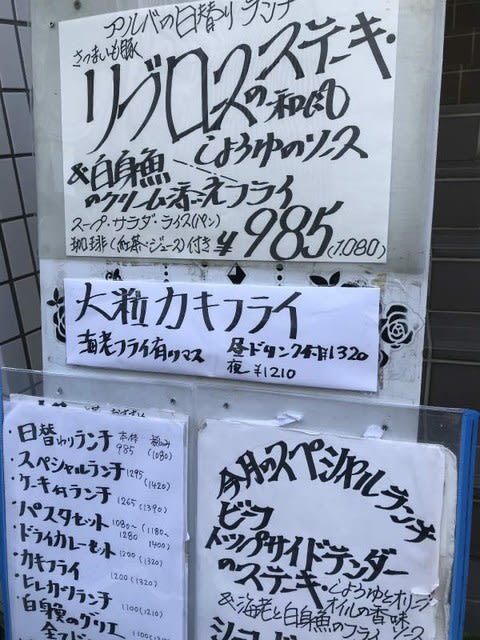 アルバの日替りランチ
さつまいも豚
リブロースステーキ
の和だし
しょうゆのソース
&白身魚
のクリーム添えフライ
スープ・サラダ・ライス(パン)
珈琲(紅茶・ジュース)付き ¥985(1,080)
大粒カキフライ
海老フライ有リマス 昼ドリンク付¥1320
夜¥1210
・日替わりランチ 本体985 税込み(1080)
・スペシャルランチ 1295(1420)
1265(1390)
・パスタセット 1080~(1180~
1280 1400)
・ドライカレーセット 1200(1320)
・カキフライ 1200(1320)
・ヒレカツランチ 1100(1210)
・白身魚のグリエ 1100(1210)
今月のスペシャルランチ
ビーフ
トップサイドテンダー
のステーキ
しょうゆとオリーブ
オイルの香味
&海老と白身魚のフライ